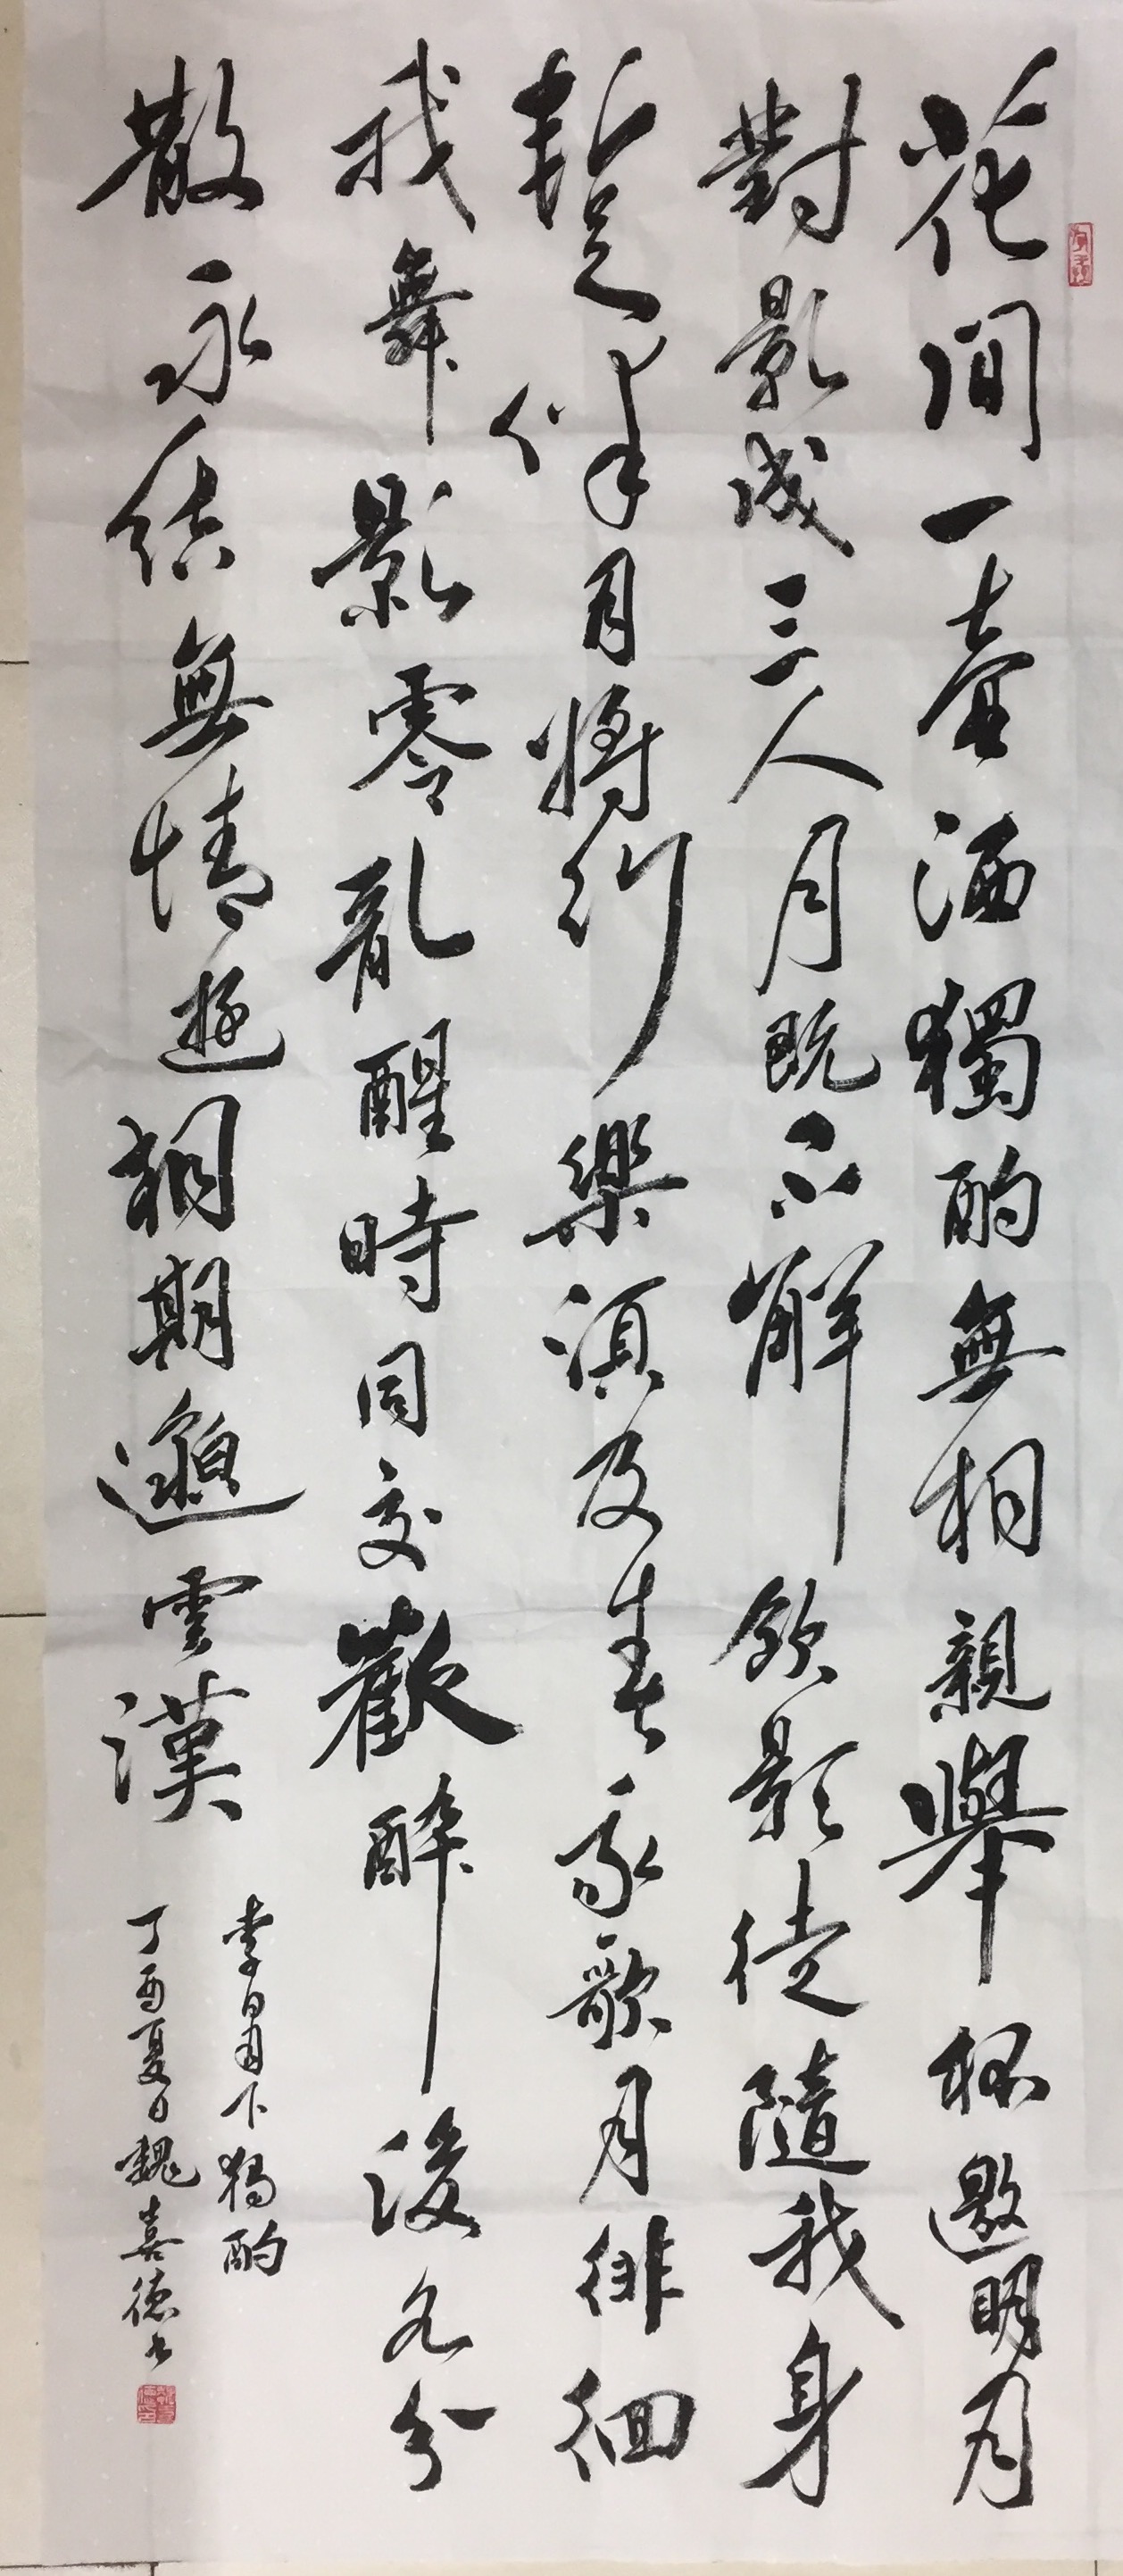 花间一壺酒獨酌無相親舉杯邀明月
對影成三人月既不解飲影徒隨我身
暫伴月將行樂須及春我歌月徘徊
我舞影零亂醒時同交歡醉後各分
散永結無情遊相期邈雲漢
李白月下獨酌
丁酉夏日魏喜德书